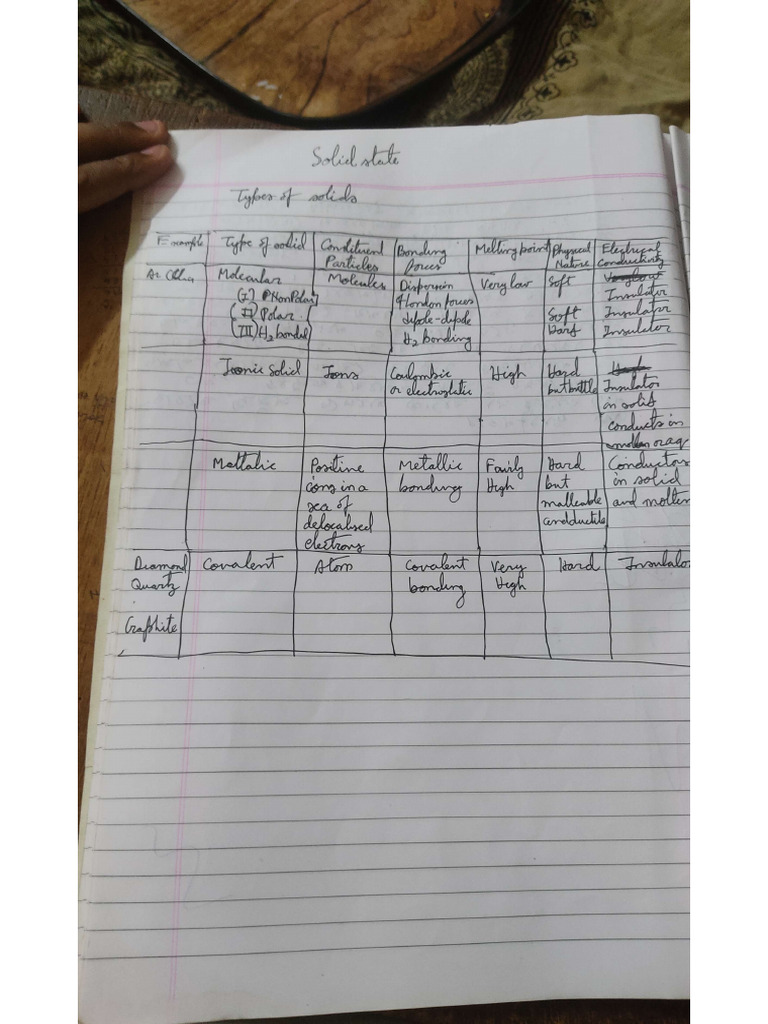 Solid state
Types of solids
Example Type of solid Constituent Particles Bonding forces Melting point Physical Nature Electrical Conductivity
Molecular Molecules Dispersion Very low Soft
(I) NonPolar or London forces Insulator
(II) Polar dipole-dipole Soft Insulator
(III) H2 bonded H2 bonding Hard Insulator
Ionic Solid Ions Coulombic High Hard
or electrostatic but brittle Insulator
in solid
conducts in
Mettalic Positive Metallic Fairly Hard Conductors
ions in a bonding High but in solid
sea of malleable and molten
delocalised and ductile
electrons
Diamond Covalent Atom Covalent Very Hard Insulato
Quartz bonding High
Graphite